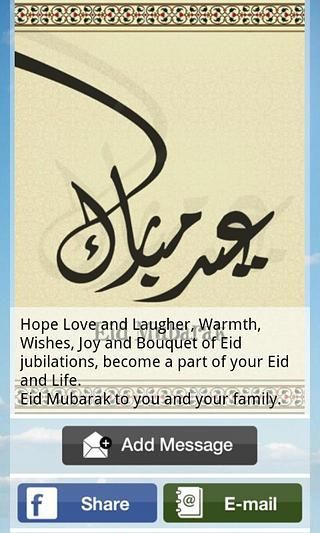 عيد مبارك
Eid Mubarak
Hope Love and Laugher, Warmth,
Wishes, Joy and Bouquet of Eid
jubilations, become a part of your Eid
and Life.
Eid Mubarak to you and your family.
Add Message
f Share
@ E-mail